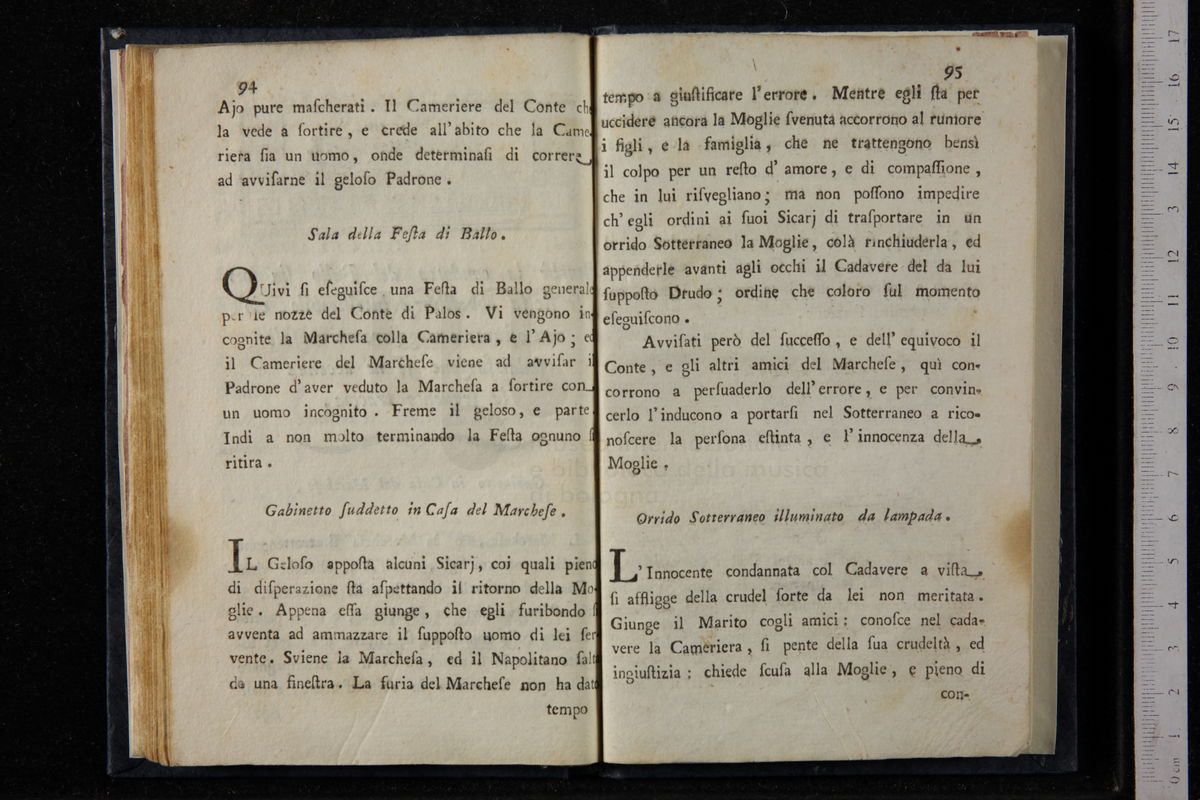 94
Ajo pure maſcherati. Il Cameriere del Conte che
la vede a ſortire, e crede all'abito che la Came-
riera ſia un uomo, onde determinaſi di correre
ad avviſarne il geloſo Padrone.
Sala della Feſta di Ballo.
QUivi ſi eſeguiſce una Feſta di Ballo generale
per le nozze del Conte di Palos. Vi vengono in-
cognite la Marcheſa colla Cameriera, e l'Ajo; ed
il Cameriere del Marcheſe viene ad avviſar il
Padrone d'aver veduto la Marcheſa a ſortire con
un uomo incognito. Freme il geloſo, e parte.
Indi a non molto terminando la Feſta ognuno ſi
ritira.
Gabinetto ſuddetto in Caſa del Marcheſe.
IL Geloſo appoſta alcuni Sicarj, coi quali pieno
di diſperazione ſta aſpettando il ritorno della Mo-
glie. Appena eſſa giunge, che egli furibondo ſi
avventa ad ammazzare il ſuppoſto uomo di lei ſer-
vente. Sviene la Marcheſa, ed il Napolitano ſalta
da una fineſtra. La furia del Marcheſe non ha dato
tempo
95
tempo a giuſtificare l'errore. Mentre egli ſta per
uccidere ancora la Moglie ſvenuta accorrono al rumore
i figli, e la famiglia, che ne trattengono bensì
il colpo per un reſto d'amore, e di compaſſione,
che in lui riſvegliano; ma non poſſono impedire
ch'egli ordini ai ſuoi Sicarj di traſportare in un
orrido Sotterraneo la Moglie, colà rinchiuderla, ed
appenderle avanti agli occhi il Cadavere del da lui
ſuppoſto Drudo; ordine che coloro ſul momento
eſeguiſcono.
Avviſati però del ſucceſſo, e dell'equivoco il
Conte, e gli altri amici del Marcheſe, quì con-
corrono a perſuaderlo dell'errore, e per convin-
cerlo l'inducono a portarſi nel Sotterraneo a rico-
noſcere la perſona eſtinta, e l'innocenza della
Moglie.
Orrido Sotterraneo illuminato da lampada.
L'Innocente condannata col Cadavere a viſta
ſi affligge della crudel ſorte da lei non meritata.
Giunge il Marito cogli amici: conoſce nel cada-
vere la Cameriera, ſi pente della ſua crudeltà, ed
ingiuſtizia; chiede ſcuſa alla Moglie, e pieno di
con-
e biblioteca della musica
di bologna
0 cm 1 2 3 4 5 6 7 8 9 10 11 12 13 14 15 16 17